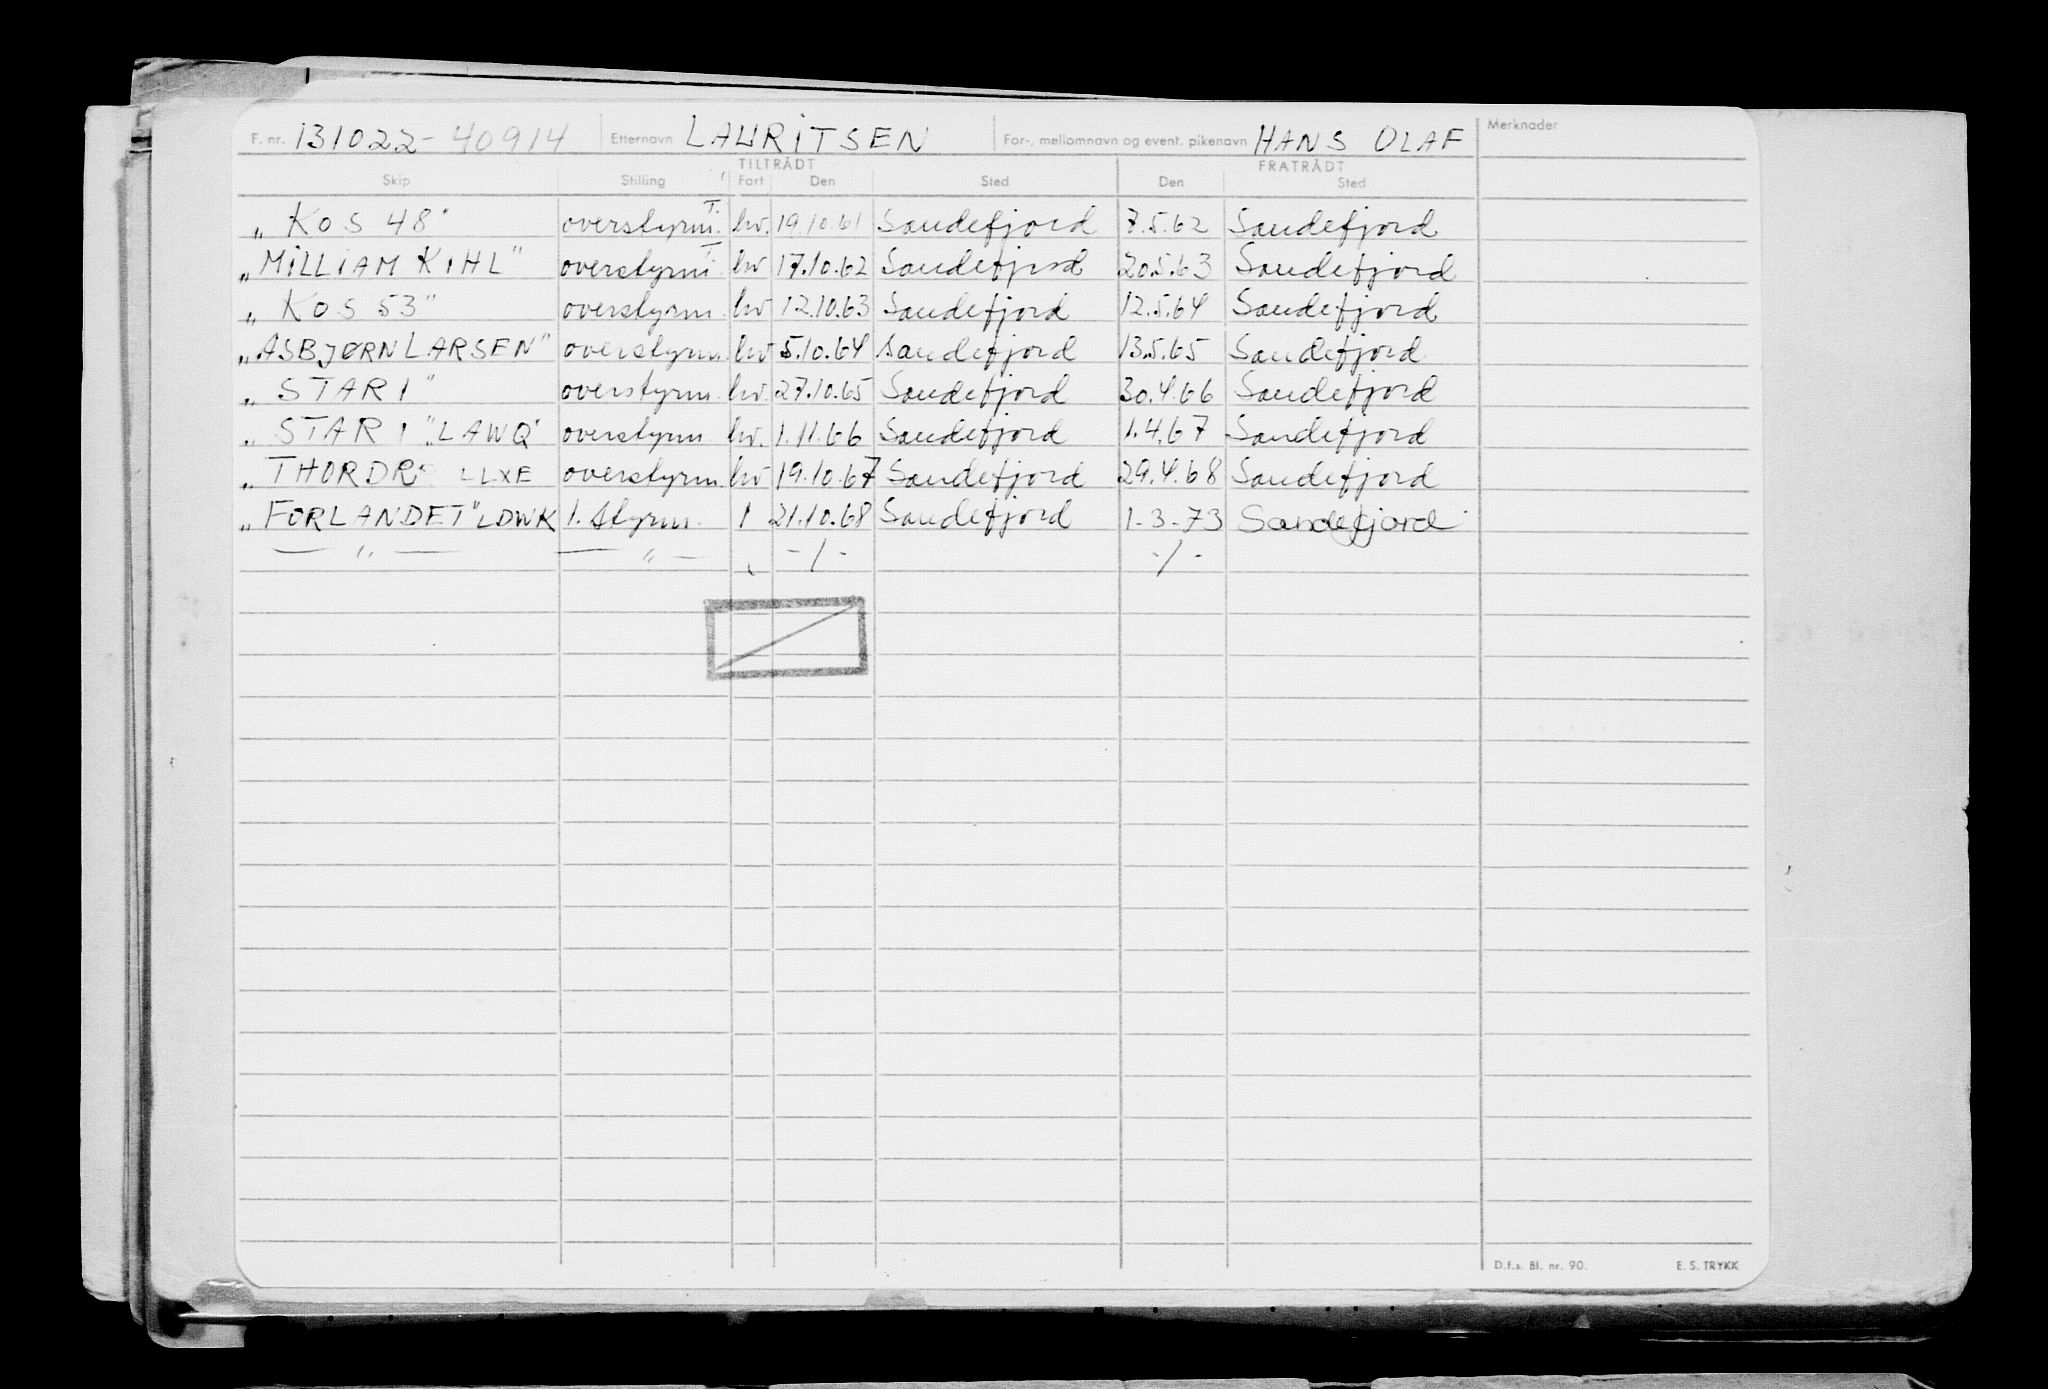 F. nr. 131022-40914 Etternavn LAURITSEN For-, mellomnavn og event. pikenavn HANS OLAF Merknader
TILTRÅDT FRATRÅDT
Skip Stilling Fart Den Sted Den Sted
„KOS 48" overstyrm. I. hv. 19.10.61 Sandefjord 7.5.62 Sandefjord
„MILLIAM KIHL" overstyrm I hv 17.10.62 Sandefjord 20.5.63 Sandefjord
„KOS 53" overstyrm. hv 12.10.63 Sandefjord 12.5.64 Sandefjord
„ASBJØRN LARSEN" overstyrm. hv 5.10.64 Sandefjord 13.5.65 Sandefjord
„STAR 1" overstyrm. hv. 27.10.65 Sandefjord 30.4.66 Sandefjord
„STAR 1 "LAWQ" overstyrm. hv. 1.11.66 Sandefjord 1.4.67 Sandefjord
„THORDR LLXE overstyrm. hv 19.10.67 Sandefjord 29.4.68 Sandefjord
„FORLANDET" LDWK 1. styrm. 1 21.10.68 Sandefjord 1-3-73 Sandefjord
— " — — " — -/- -/-
D.f.s. Bl. nr. 90. E. S. TRYKK